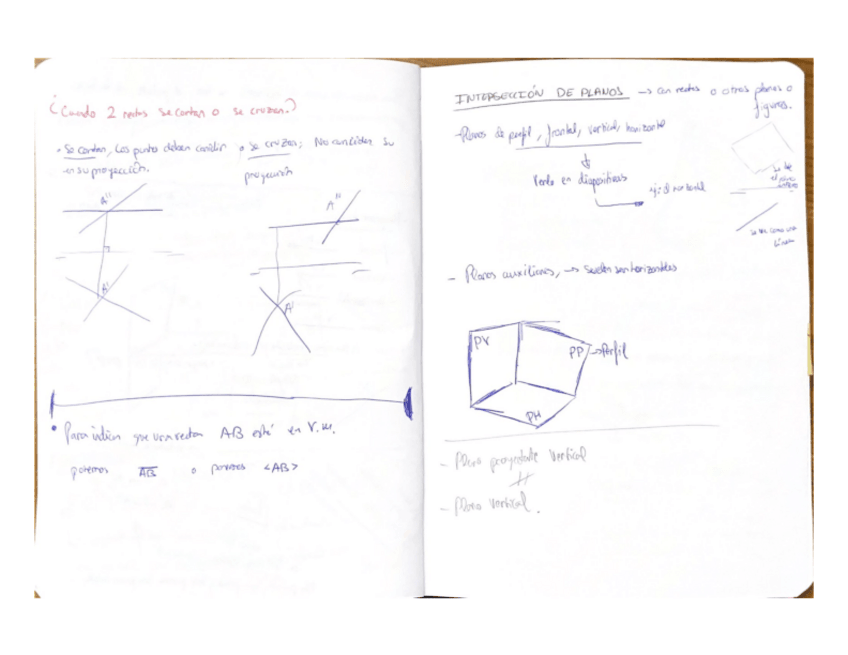 ¿Cuando 2 rectas se cortan o se cruzan?
• Se cortan, Los punto deben coincidir
en su proyección.
• se cruzan; No coinciden su
proyección
A''
A'
A''
A'
• Para indicar que una recta AB esté en V.M.
ponemos AB o ponemos <AB>
INTERSECCIÓN DE PLANOS → con rectas o otros planos o
figuras.
- Planos de perfil, frontal, vertical, horizontal
Verlo en diapositivas
ej: el horizontal
se ve
se ve como una
línea
- Planos auxiliares, → Suelen ser horizontales
PV
PP → Perfil
PH
- Plano proyectante vertical
≠
- Plano vertical.